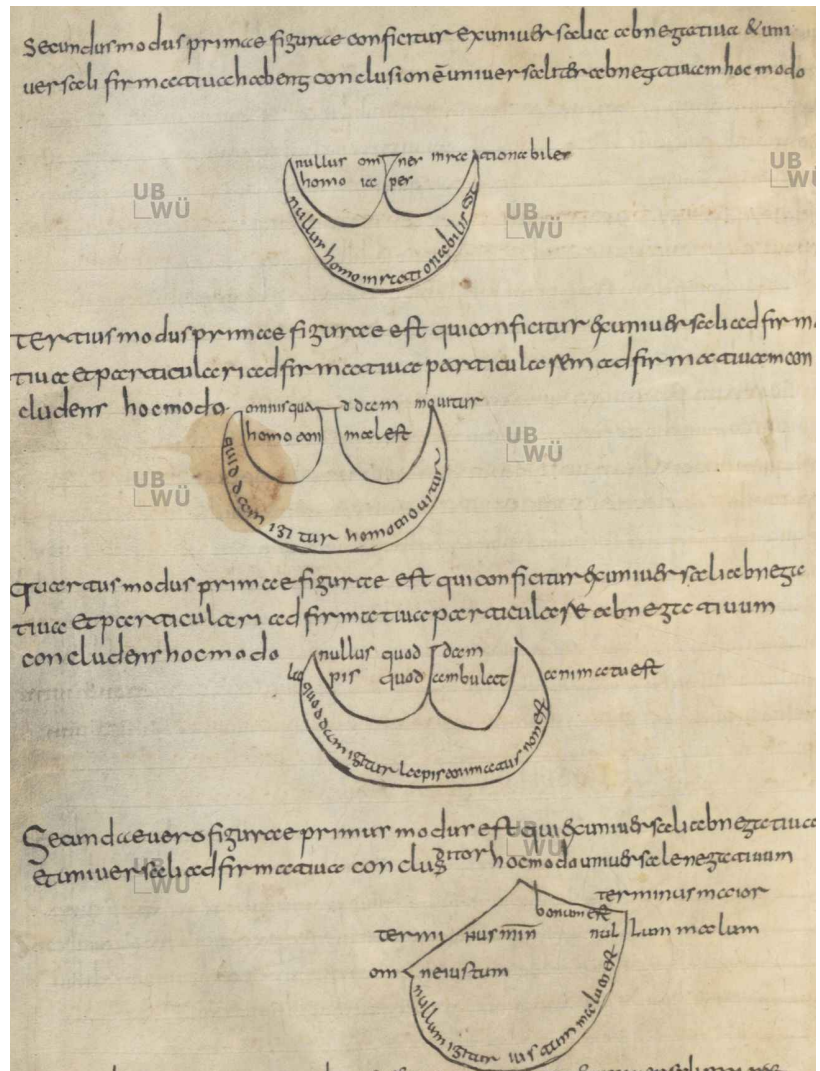 Secundus modus primae figurae conficitur ex universali abnegativa & uni
versali firmativa habens conclusionē universaliter abnegativam hoc modo
nullus om nes inrationabiles
homo la pes
nullus homo inrationabilis est
UB WÜ
UB WÜ
UB WÜ
Tertius modus primae figurae est qui conficitur ex universali adfirma
tiva et particulari adfirmativa particularem adfirmativam con
cludens hoc modo
omnis qua ddam movitur
homo con mal est
quiddam igitur homo movitur
UB WÜ
UB WÜ
Quartus modus primae figurae est qui conficitur ex universali abnega
tiva et particulari adfirmativa particulare abnegativum
concludens hoc modo
nullus quod dam
la pis quod ambulat animatu est
quoddam igitur lapis animatus non est
Secundae vero figurae primus modus est qui ex universali abnegativa
et universali adfirmativa concluditor hoc modo universale negativum
UB WÜ
UB WÜ
terminus maior
bonum est
termi nus min nul lum malum
om ne iustum
nullum igitur iustum malum est